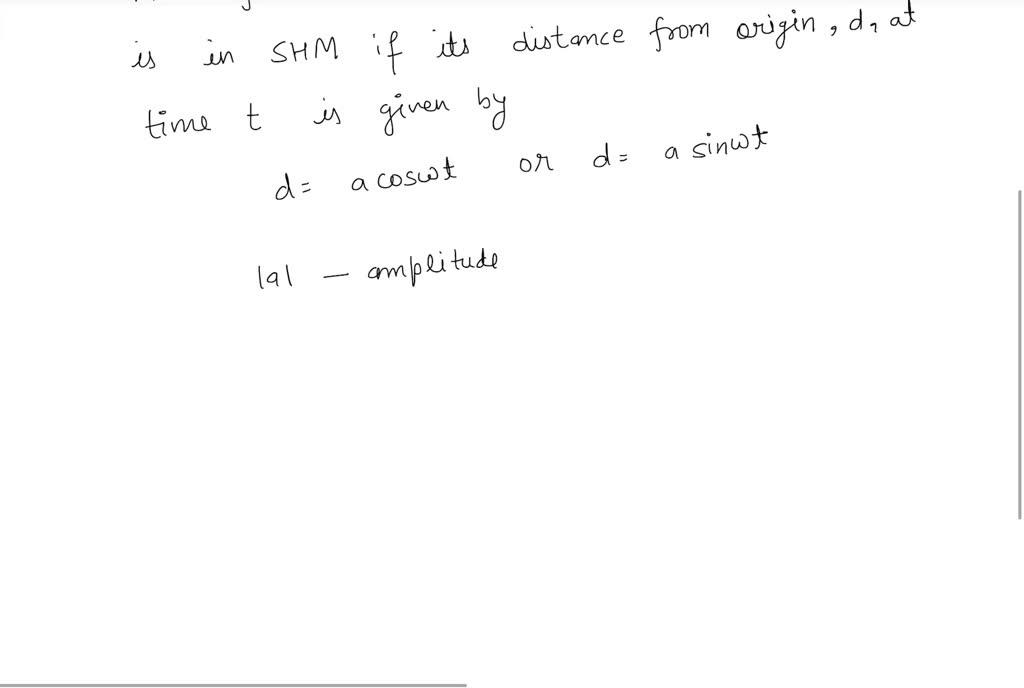 is in SHM if its distance from origin, d, at
time t is given by
d = a cosωt or d = a sinωt
|a| — amplitude